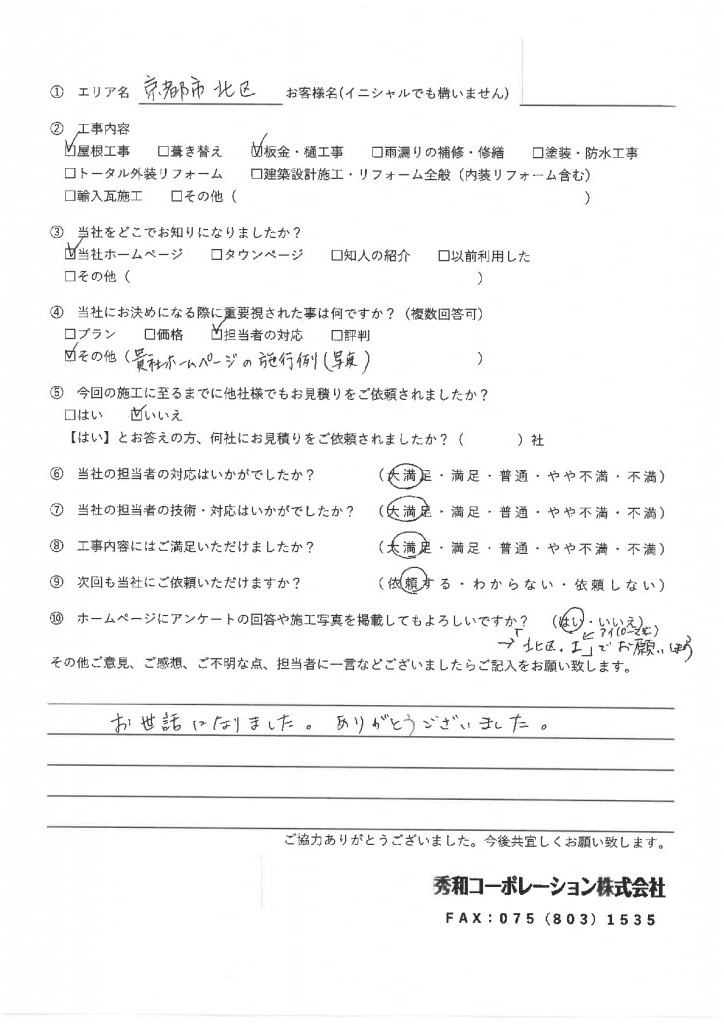 ① エリア名 京都市 北区 お客様名(イニシャルでも構いません)
② 工事内容
☑屋根工事 □葺き替え ☑板金・樋工事 □雨漏りの補修・修繕 □塗装・防水工事
□トータル外装リフォーム □建築設計施工・リフォーム全般（内装リフォーム含む）
□輸入瓦施工 □その他（ ）
③ 当社をどこでお知りになりましたか？
☑当社ホームページ □タウンページ □知人の紹介 □以前利用した
□その他（ ）
④ 当社にお決めになる際に重要視された事は何ですか？（複数回答可）
□プラン □価格 ☑担当者の対応 □評判
☑その他（貴社ホームページの施行例(写真) ）
⑤ 今回の施工に至るまでに他社様でもお見積りをご依頼されましたか？
□はい ☑いいえ
【はい】とお答えの方、何社にお見積りをご依頼されましたか？（ ）社
⑥ 当社の担当者の対応はいかがでしたか？ （大満足・満足・普通・やや不満・不満）
⑦ 当社の担当者の技術・対応はいかがでしたか？ （大満足・満足・普通・やや不満・不満）
⑧ 工事内容にはご満足いただけましたか？ （大満足・満足・普通・やや不満・不満）
⑨ 次回も当社にご依頼いただけますか？ （依頼する・わからない・依頼しない）
⑩ ホームページにアンケートの回答や施工写真を掲載してもよろしいですか？ （はい・いいえ）
→「北区．I」でお願いします
その他ご意見、ご感想、ご不明な点、担当者に一言などございましたらご記入をお願い致します。
お世話になりました。ありがとうございました。
ご協力ありがとうございました。今後共宜しくお願い致します。
秀和コーポレーション株式会社
FAX：075（803）1535